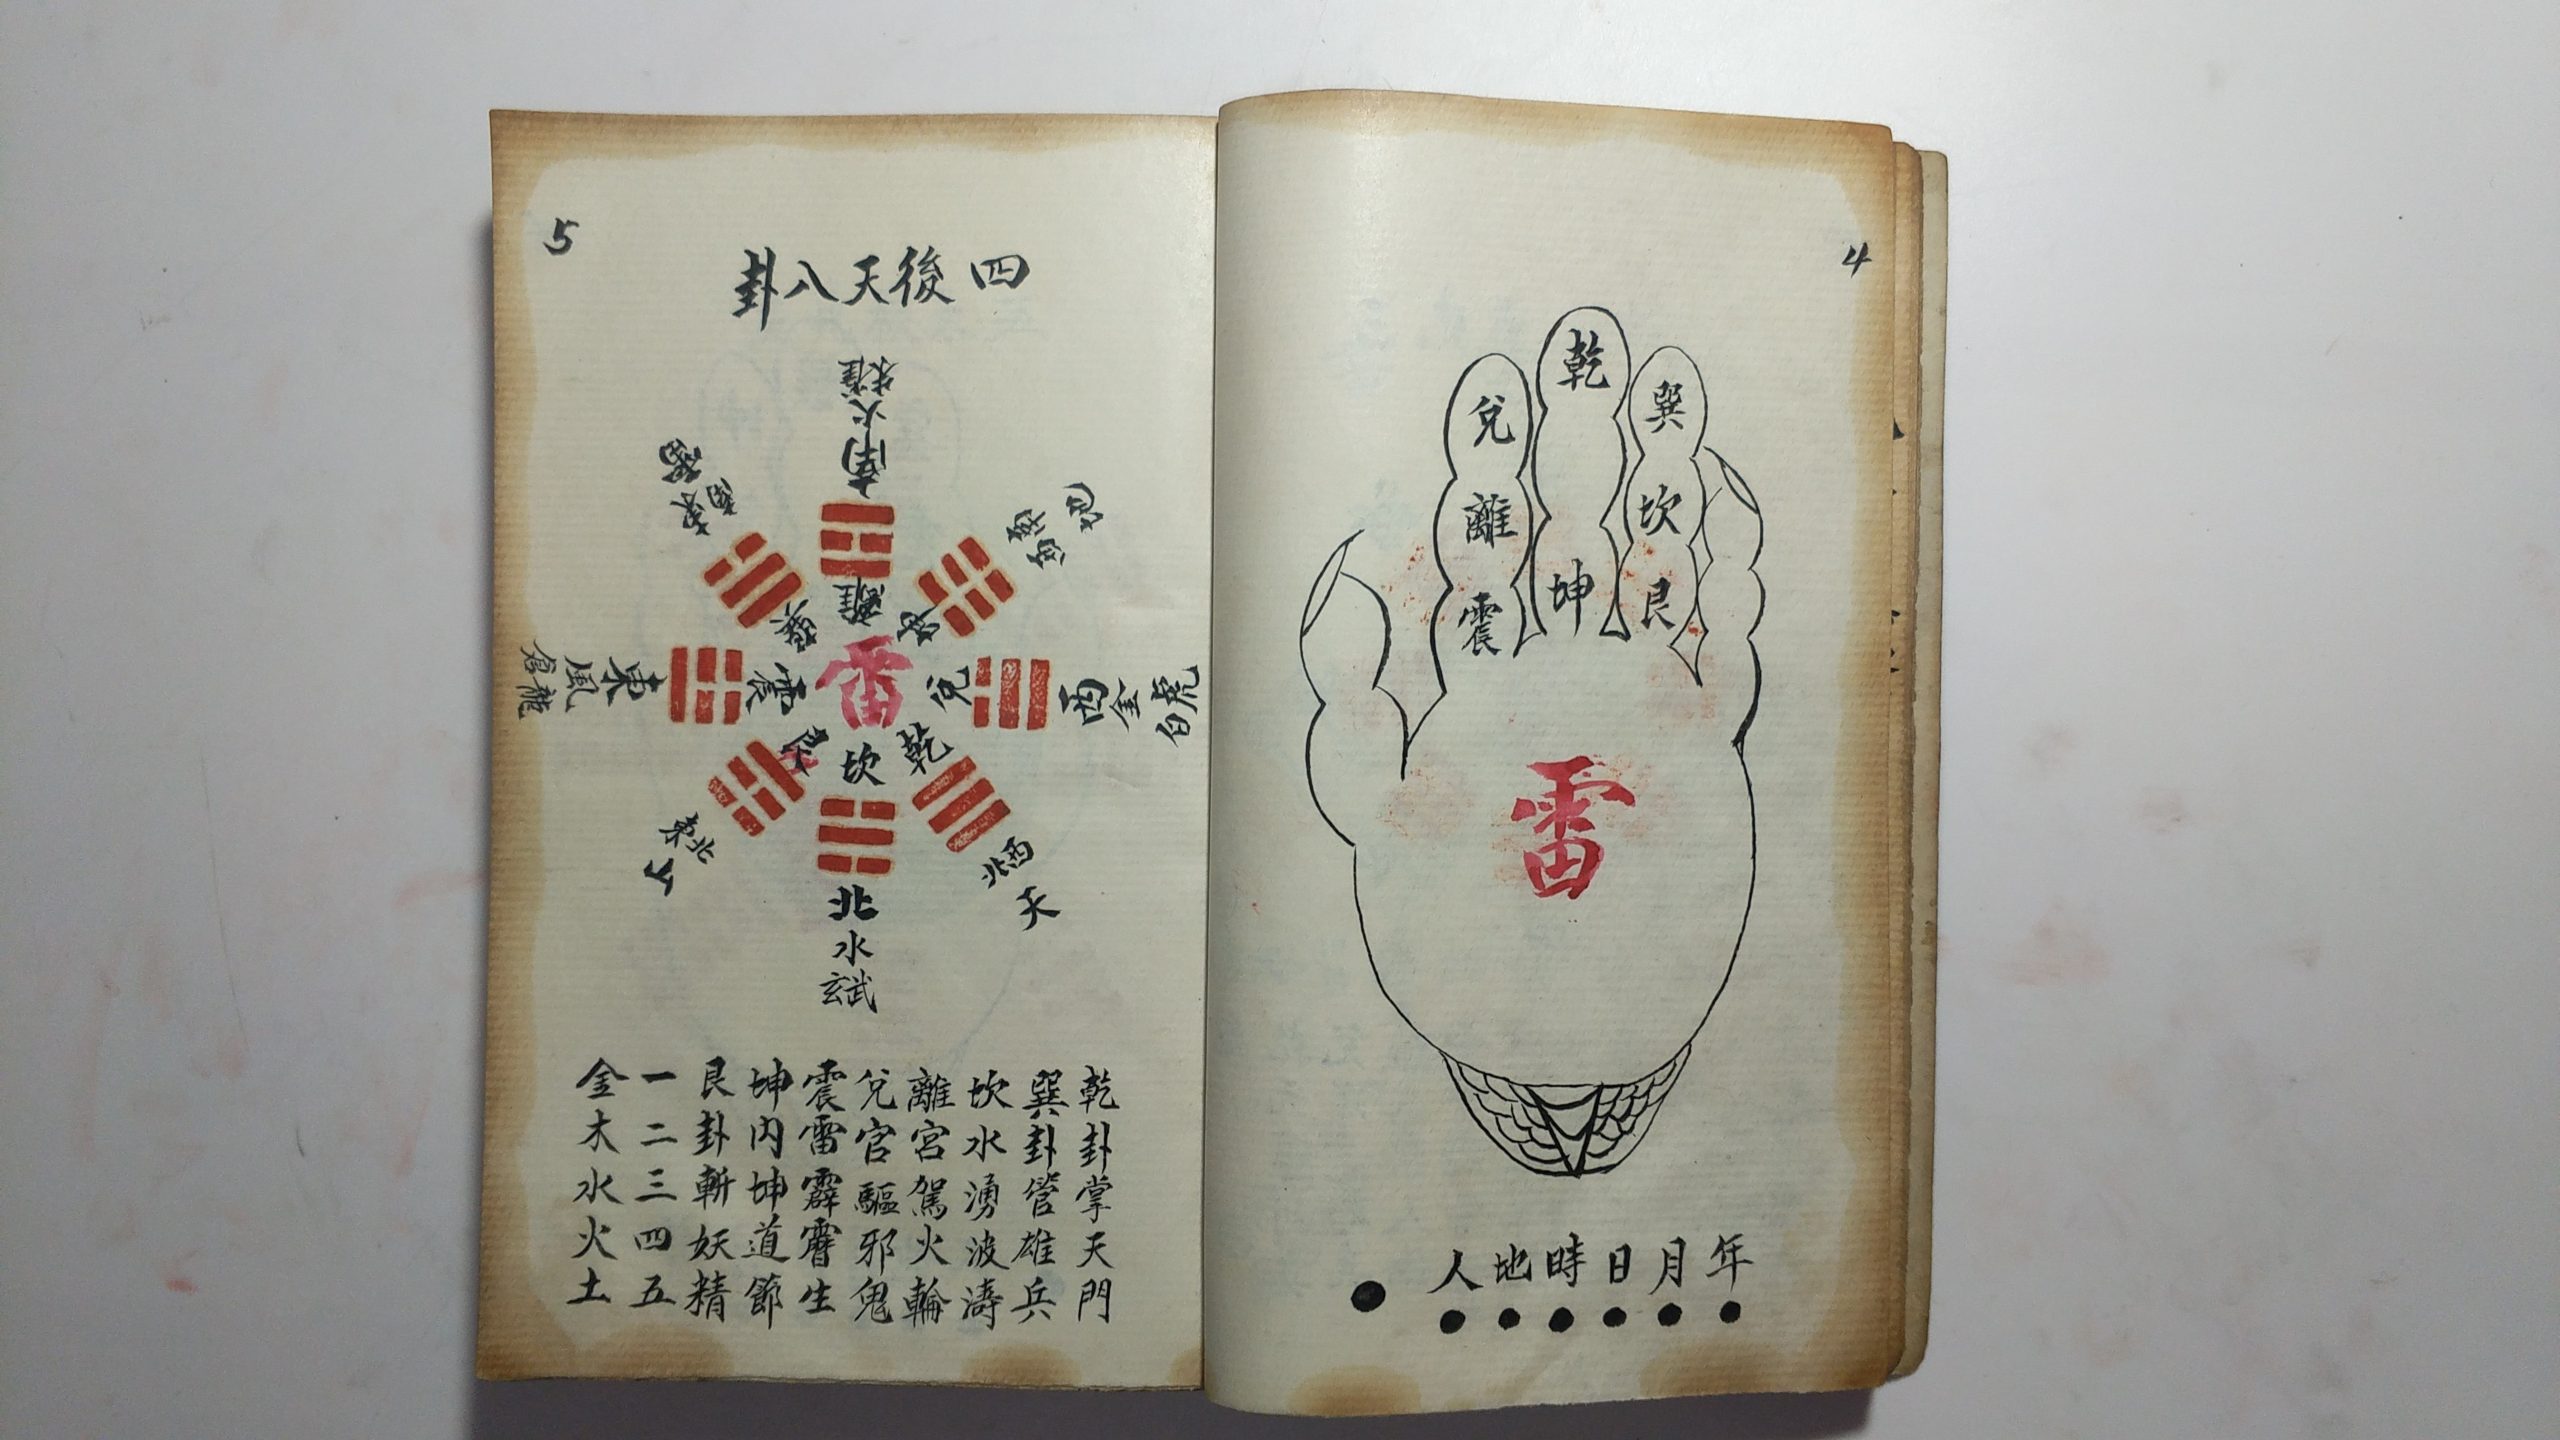 4
乾
巽
兌
坎
離
艮
坤
震
雷
年月日時地人
5
四 後天八卦
朱雀
火
南
離
地
西南
坤
兌
西
金
白虎
乾
西北
天
坎
北
水
玄武
艮
東北
山
震
東
風
倉龍
巽
東南
雷
乾卦掌天門
巽卦管雄兵
坎水湧波濤
離宮駕火輪
兌宮驅邪鬼
震雷霹靂生
坤內坤道節
艮卦斬妖精
一二三四五
金木水火土